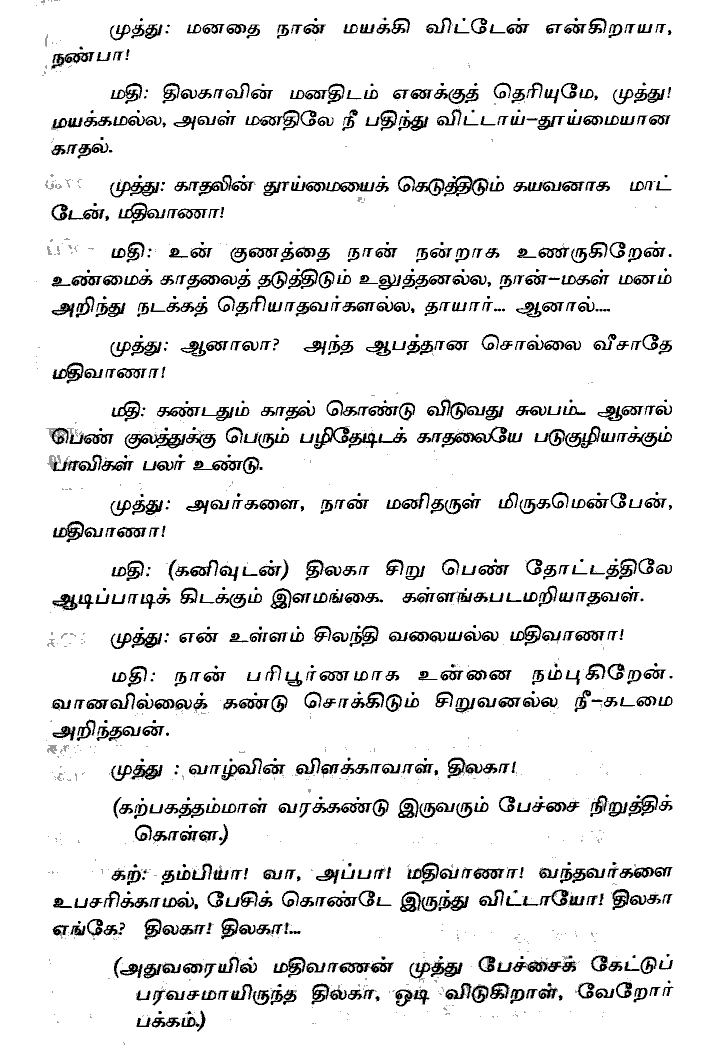 முத்து: மனதை நான் மயக்கி விட்டேன் என்கிறாயா,
நண்பா!
மதி: திலகாவின் மனதிடம் எனக்குத் தெரியுமே, முத்து!
மயக்கமல்ல, அவள் மனதிலே நீ பதிந்து விட்டாய்–தூய்மையான
காதல்.
முத்து: காதலின் தூய்மையைக் கெடுத்திடும் கயவனாக மாட்
டேன், மதிவாணா!
மதி: உன் குணத்தை நான் நன்றாக உணருகிறேன்.
உண்மைக் காதலைத் தடுத்திடும் உலுத்தனல்ல, நான்–மகள் மனம்
அறிந்து நடக்கத் தெரியாதவர்களல்ல, தாயார்... ஆனால்....
முத்து: ஆனாலா? அந்த ஆபத்தான சொல்லை வீசாதே
மதிவாணா!
மதி: கண்டதும் காதல் கொண்டு விடுவது சுலபம்... ஆனால்
பெண் குலத்துக்கு பெரும் பழிதேடிடக் காதலையே படுகுழியாக்கும்
பாவிகள் பலர் உண்டு.
முத்து: அவர்களை, நான் மனிதருள் மிருகமென்பேன்,
மதிவாணா!
மதி: (கனிவுடன்) திலகா சிறு பெண் தோட்டத்திலே
ஆடிப்பாடிக் கிடக்கும் இளமங்கை. கள்ளங்கபடமறியாதவள்.
முத்து: என் உள்ளம் சிலந்தி வலையல்ல மதிவாணா!
மதி: நான் பரிபூர்ணமாக உன்னை நம்புகிறேன்.
வானவில்லைக் கண்டு சொக்கிடும் சிறுவனல்ல நீ–கடமை
அறிந்தவன்.
முத்து : வாழ்வின் விளக்காவாள், திலகா!
(கற்பகத்தம்மாள் வரக்கண்டு இருவரும் பேச்சை நிறுத்திக்
கொள்ள.)
கற்: தம்பியா! வா, அப்பா! மதிவாணா! வந்தவர்களை
உபசரிக்காமல், பேசிக் கொண்டே இருந்து விட்டாயோ! திலகா
எங்கே? திலகா! திலகா!...
(அதுவரையில் மதிவாணன் முத்து பேச்சைக் கேட்டுப்
பரவசமாயிருந்த திலகா, ஓடி விடுகிறாள், வேறோர்
பக்கம்.)